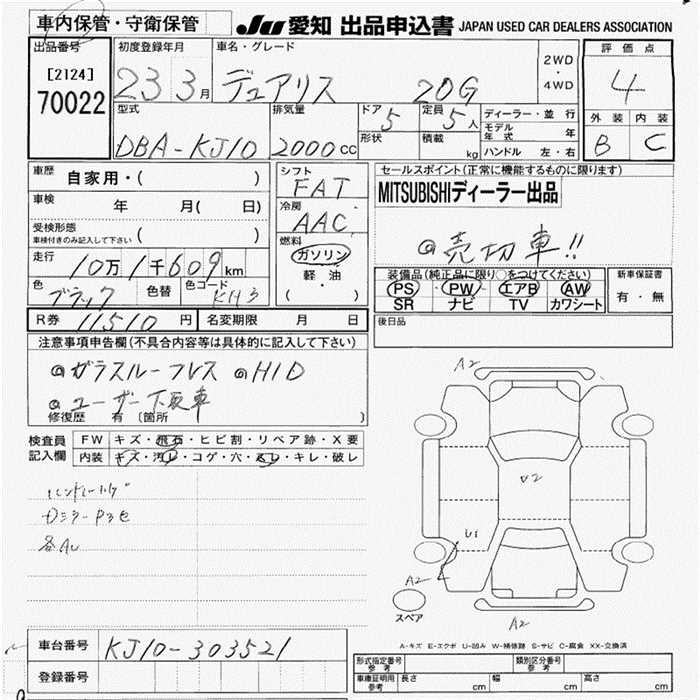 車内保管・守衛保管
JU 愛知 出品申込書 JAPAN USED CAR DEALERS ASSOCIATION
出品番号
[2124]
70022
初度登録年月
23 3月
車名・グレード
デュアリス 20G
2WD
・
4WD
評価点
4
外装 内装
B C
型式
DBA-KJ10
排気量
2000cc
ドア 5
定員 5人
形状
積載 kg
ディーラー・並行
モデル年式 年
ハンドル 左・右
車歴
自家用・( )
車検
年 月( 日)
受検形態
車検付きのみ記入して下さい ( )
走行
10万1千609km
色
ブラック
色替
色コード
KH3
R券 11510円
名変期限 月 日
シフト
FAT
冷房
AAC
燃料
ガソリン
・
軽・油
( )
セールスポイント(正常に機能するものに限ります)
MITSUBISHIディーラー出品
◎売切車!!
装備品(純正品に限り○をつけてください)
PS・PW・エアB・AW
SR ナビ TV カワシート
新車保証書
有・無
後日品
注意事項申告欄(不具合内容等は具体的に記入して下さい)
◎ガラスルーフレス ◎HID
◎ユーザー下取車
修復歴 有〔箇所 〕
検査員
記入欄
FW キズ・飛石・ヒビ割・リペア跡・X要
内装 キズ・汚レ・コゲ・穴・スレ・キレ・破レ
A2
U2
U1
A2
A2
スペア
A-キズ E-エクボ U-凹み W-補修跡 S-サビ C-腐食 XX-交換済
車台番号
KJ10-303521
登録番号
形式指定番号
参考
類別区分番号
参考
車庫証明用
参考
長さ cm 幅 cm 高さ cm